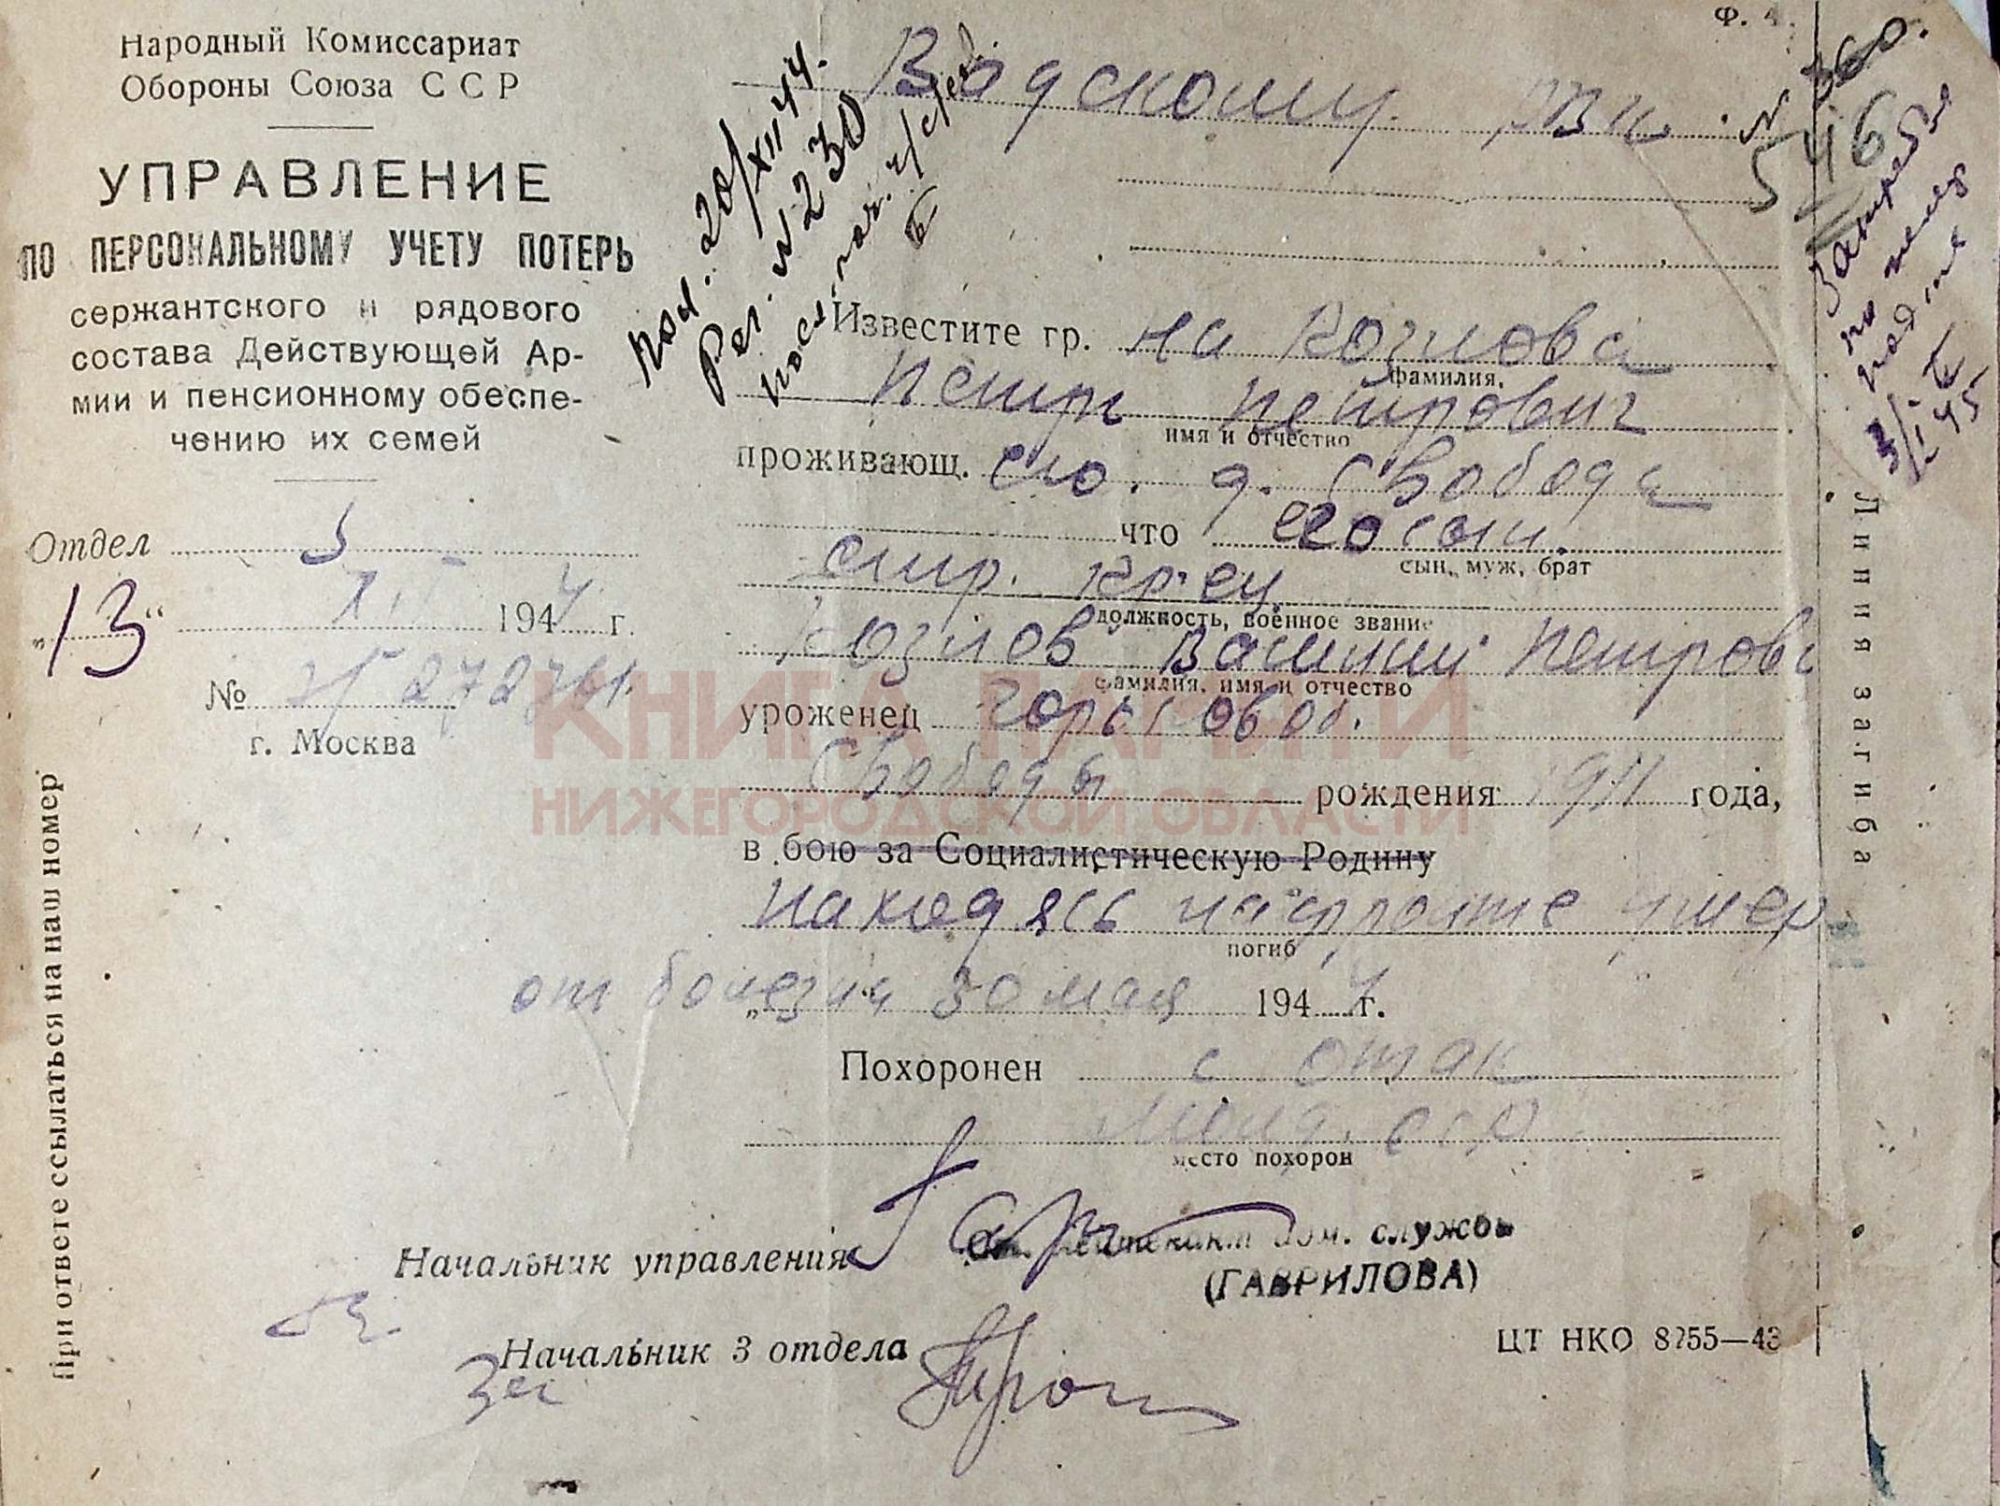 Народный Комиссариат
Обороны Союза ССР
УПРАВЛЕНИЕ
ПО ПЕРСОНАЛЬНОМУ УЧЕТУ ПОТЕРЬ
сержантского и рядового
состава Действующей Ар-
мии и пенсионному обеспе-
чению их семей
Отдел 5
"13" XI 1944 г.
№ 272761
г. Москва
При ответе ссылаться на наш номер
Пол. 20/XII 44.
Рег. № 230
Ф. 4.
Вадскому РВК
N 360.
546
3/I 45
Известите гр. на Козлова
фамилия,
Петр Петрович
имя и отчество
проживающ. его. д. Свобода
что его сын.
сын, муж, брат
стр. кр-ец
должность, военное звание
Козлов Василий Петрови
фамилия, имя и отчество
уроженец Горьков об.
Свобода рождения 1911 года,
в бою за Социалистическую Родину
находясь на фронте умер
погиб
от болезни 30 мая 1944 г.
Похоронен с Отак
Молд. ССР
место похорон
Начальник управления
Ст. лейтенант адм. службы
(ГАВРИЛОВА)
Начальник 3 отдела
ЦТ НКО 8255—43
Линия загиба
КНИГА ПАМЯТИ
НИЖЕГОРОДСКОЙ ОБЛАСТИ